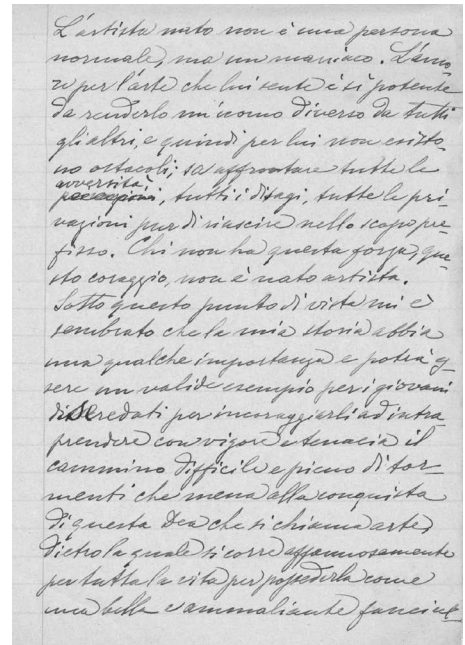 L'artista nato non è una persona
normale, ma un maniaco. L'amo-
re per l'arte che lui sente è sì potente
da renderlo un'uomo diverso da tutti
gli altri, e quindi per lui non esisto-
no ostacoli; sa affrontare tutte le
avversità
, tutti i disagi, tutte le pri-
vazioni pur di riuscire nello scopo pre-
fisso. Chi non ha questa forza, que-
sto coraggio, non è nato artista.
Sotto questo punto di vista mi è
sembrato che la mia storia abbia
una qualche importanza e potrà es-
sere un valido esempio per i giovani
diseredati per incoraggiarli ad intra-
prendere con vigore e tenacia il
cammino difficile e pieno di tor-
menti che mena alla conquista
di questa Dea che si chiama arte,
dietro la quale si corre affannosamente
per tutta la vita per possederla come
una bella e ammaliante fanciul-